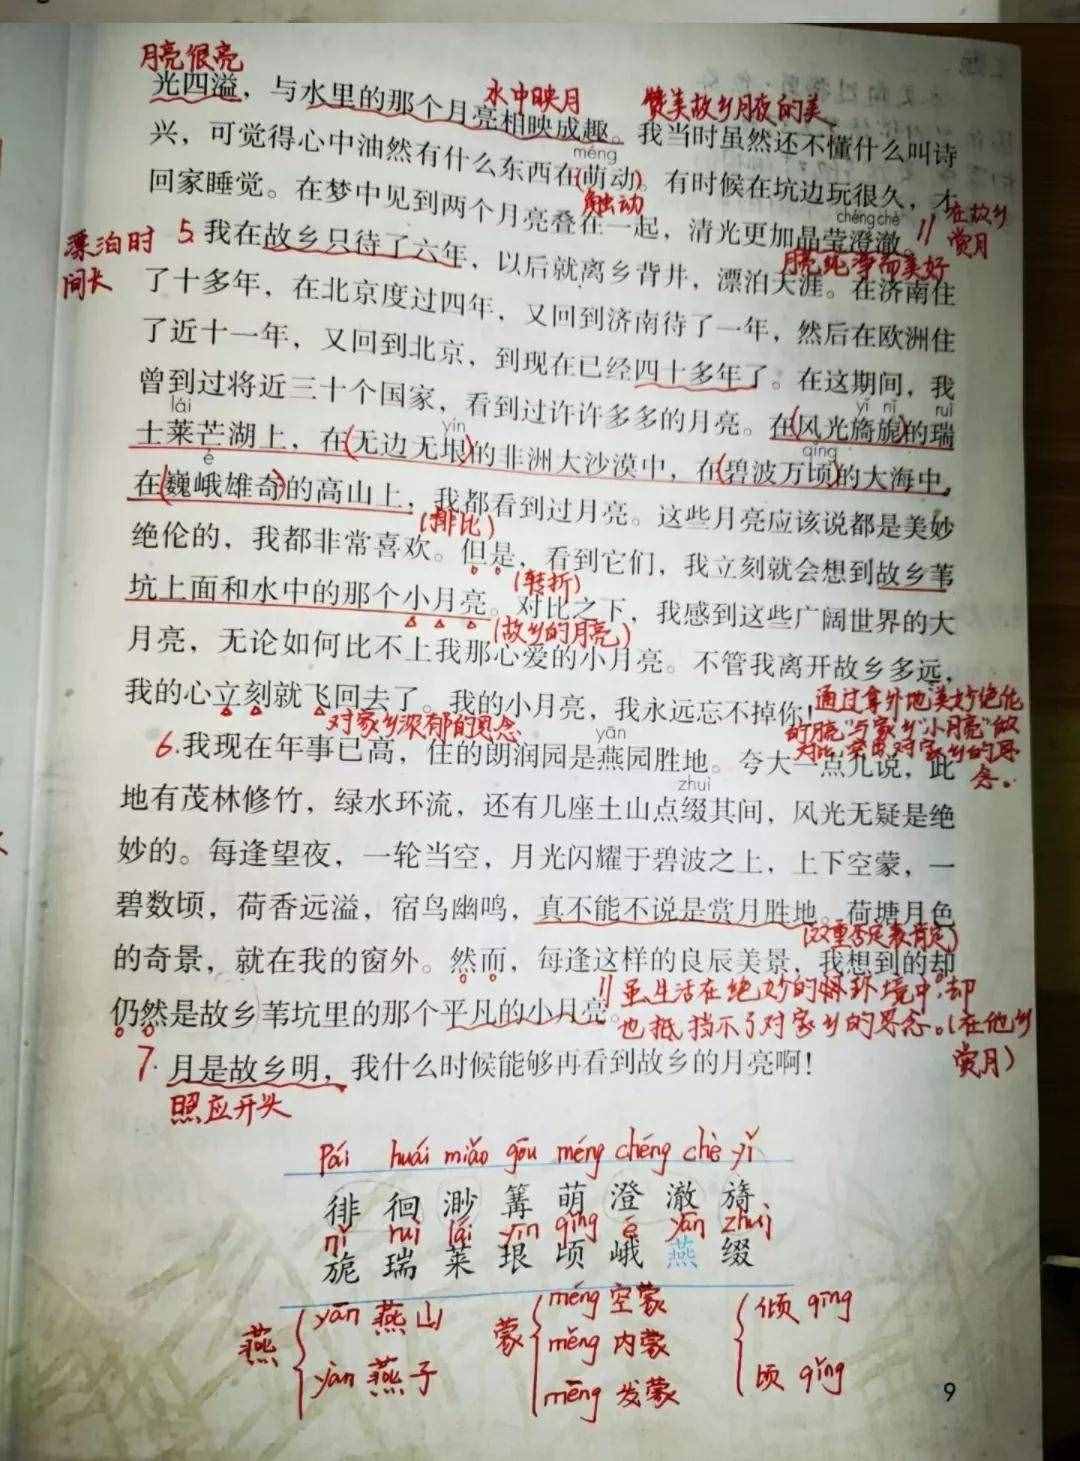 月亮很亮
光四溢，与水里的那个月亮相映成趣。我当时虽然还不懂什么叫诗
水中映月
赞美故乡月夜的美
兴，可觉得心中油然有什么东西在萌动。有时候在坑边玩很久，才
méng
触动
回家睡觉。在梦中见到两个月亮叠在一起，清光更加晶莹澄澈。
chéng chè
// 在故乡
赏月
月亮纯净而美好
漂泊时
间长
5. 我在故乡只待了六年，以后就离乡背井，漂泊天涯。在济南住
了十多年，在北京度过四年，又回到济南待了一年，然后在欧洲住
了近十一年，又回到北京，到现在已经四十多年了。在这期间，我
曾到过将近三十个国家，看到过许许多多的月亮。在(风光旖旎)的瑞
lái yǐ nǐ ruì
士莱芒湖上，在(无边无垠)的非洲大沙漠中，在(碧波万顷)的大海中，
é yín qǐng
在(巍峨雄奇)的高山上，我都看到过月亮。这些月亮应该说都是美妙
(排比)
绝伦的，我都非常喜欢。但是，看到它们，我立刻就会想到故乡苇
(转折)
坑上面和水中的那个小月亮。对比之下，我感到这些广阔世界的大
(故乡的月亮)
月亮，无论如何比不上我那心爱的小月亮。不管我离开故乡多远，
我的心立刻就飞回去了。我的小月亮，我永远忘不掉你！
对家乡浓郁的思念
通过拿外地美妙绝伦
的"月亮"与家乡"小月亮"做
对比，突出对家乡的思
念。
yān
6. 我现在年事已高，住的朗润园是燕园胜地。夸大一点儿说，此
zhuì
地有茂林修竹，绿水环流，还有几座土山点缀其间，风光无疑是绝
妙的。每逢望夜，一轮当空，月光闪耀于碧波之上，上下空蒙，一
碧数顷，荷香远溢，宿鸟幽鸣，真不能不说是赏月胜地。荷塘月色
(双重否定表肯定)
的奇景，就在我的窗外。然而，每逢这样的良辰美景，我想到的却
仍然是故乡苇坑里的那个平凡的小月亮。
// 虽生活在绝妙的环境中，却
也抵挡不了对家乡的思念。(在他乡
赏月)
7. 月是故乡明，我什么时候能够再看到故乡的月亮啊！
照应开头
pái huái miǎo gōu méng chéng chè yǐ
徘 徊 渺 篝 萌 澄 澈 旖
nǐ ruì lái yín qǐng é yān zhuì
旎 瑞 莱 垠 顷 峨 燕 缀
燕 yān 燕山
yàn 燕子
蒙 méng 空蒙
měng 内蒙
mēng 发蒙
倾 qīng
顷 qǐng
9